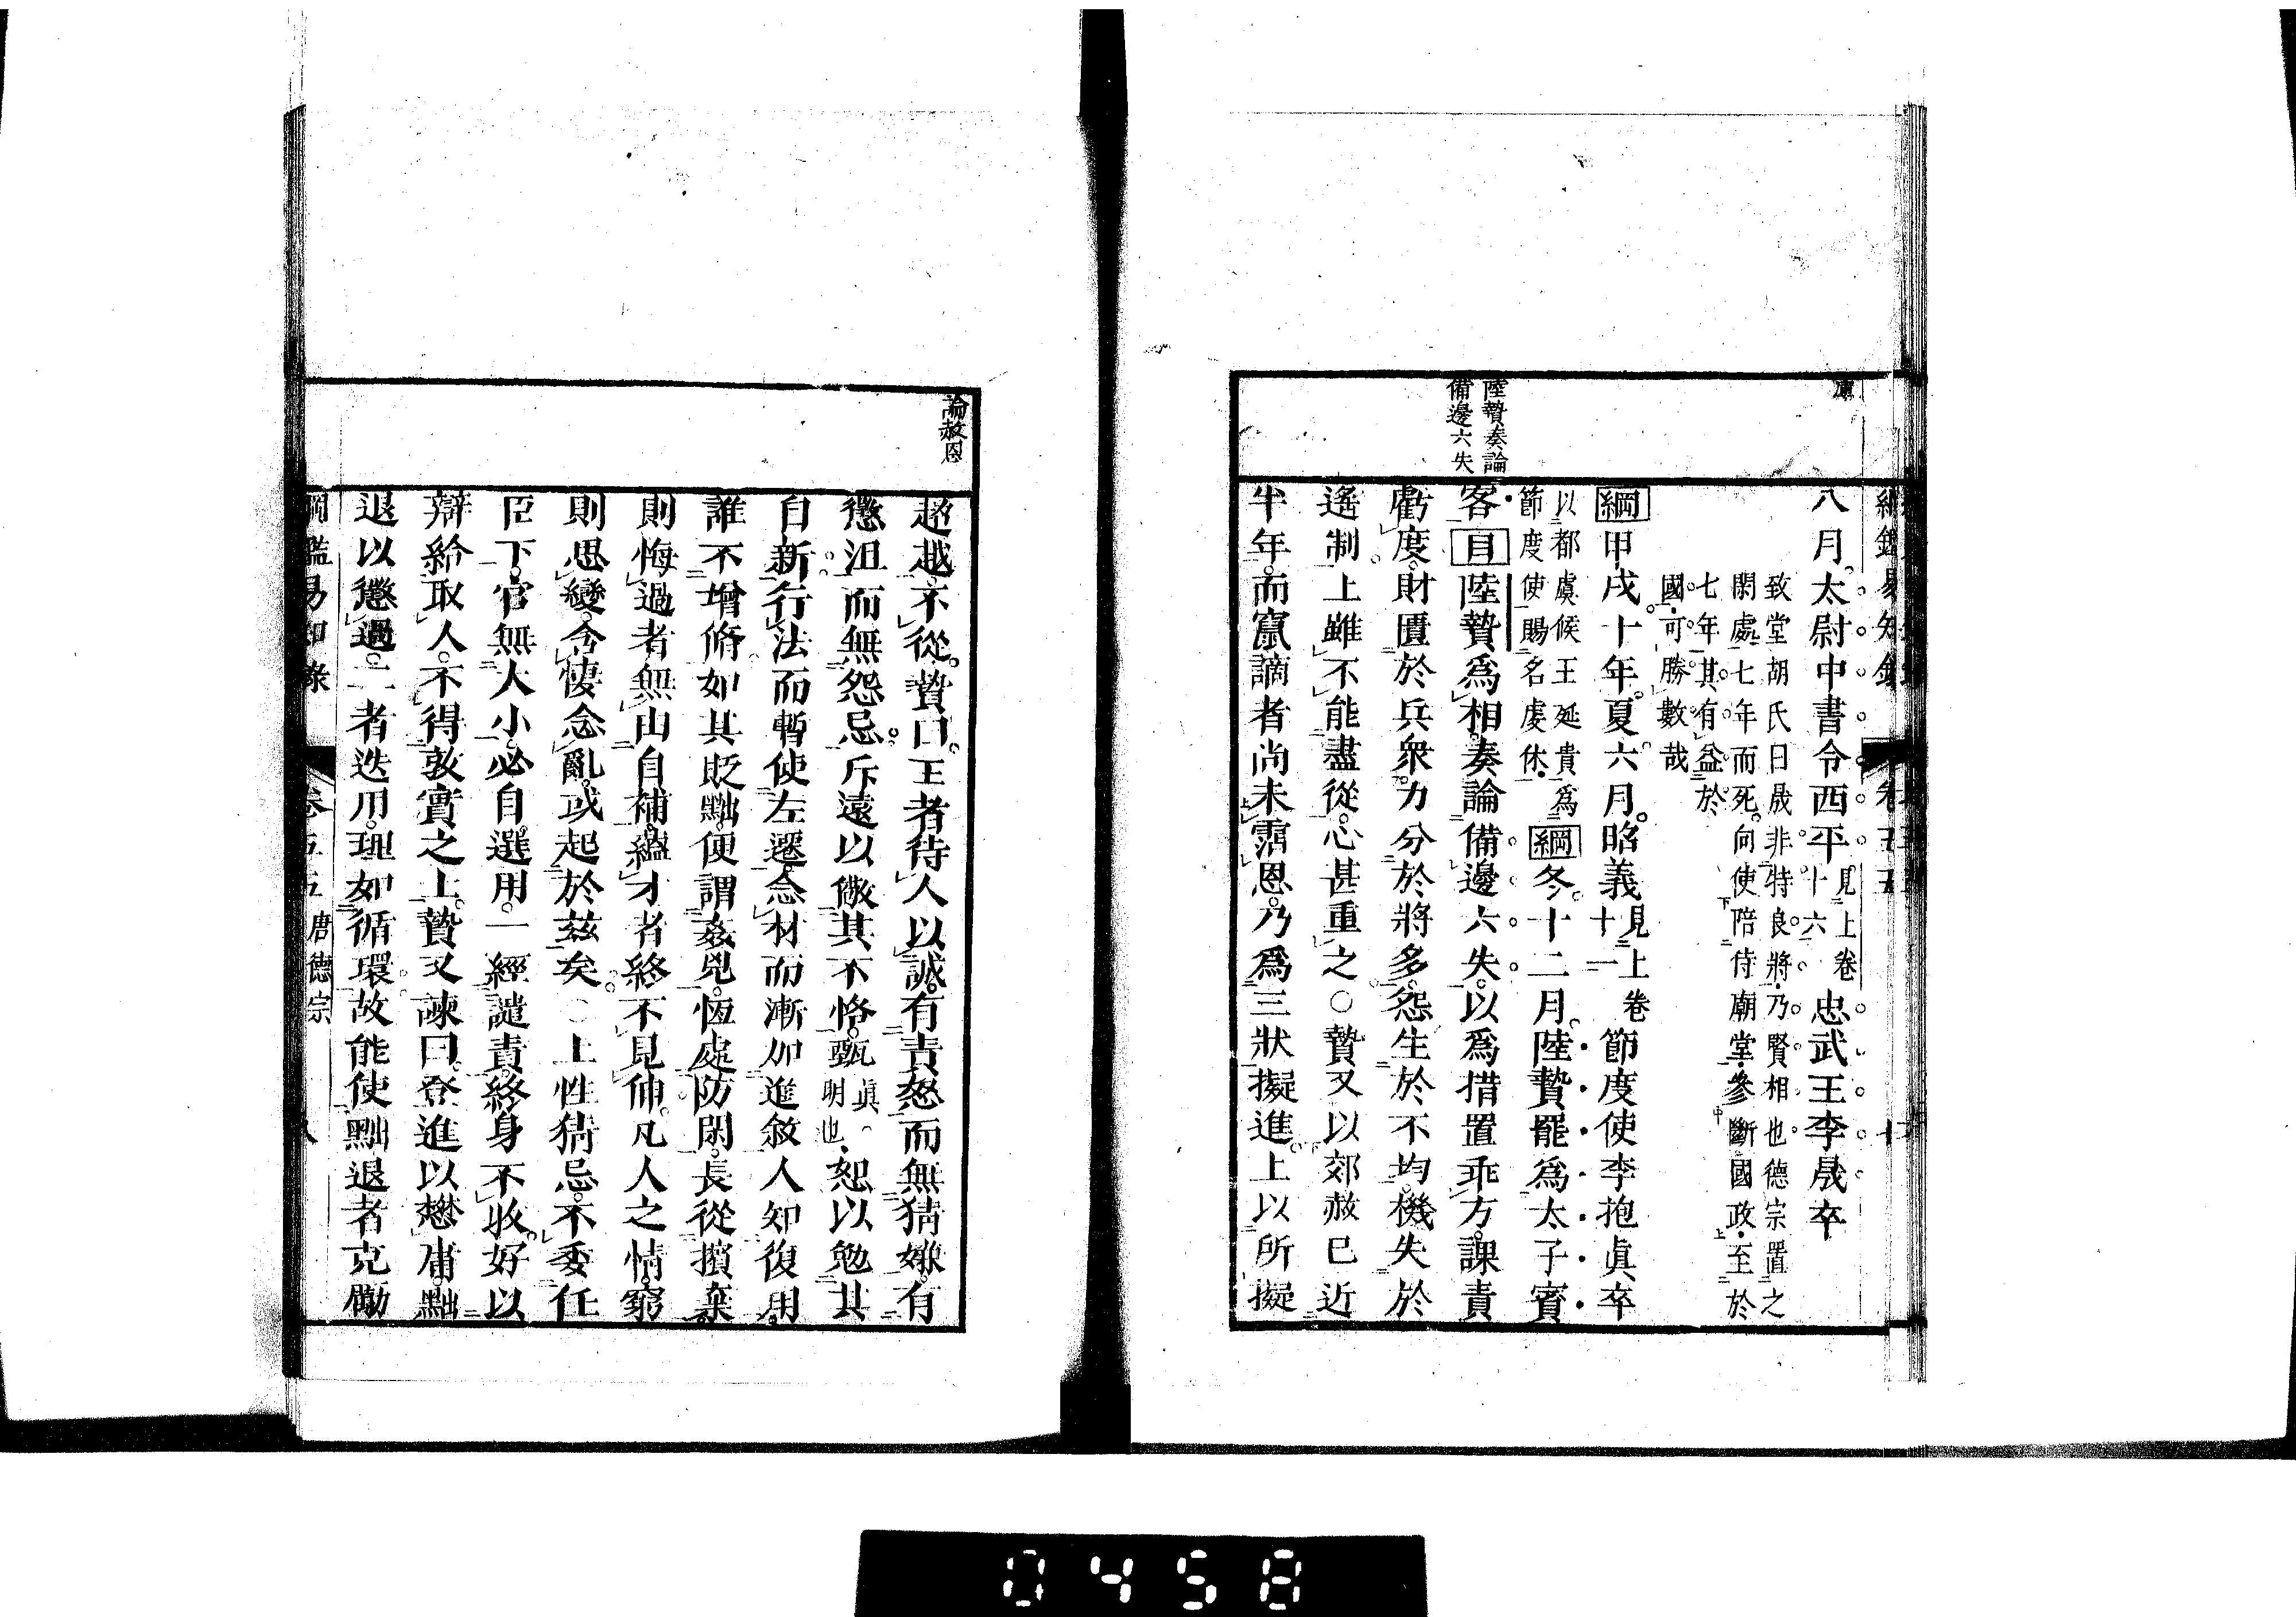 八月太尉中書令西平見上卷十六忠武王李晟卒
致堂胡氏曰晟非特良將乃賢相也德宗置之
閑處七年而死向使陪侍廟堂參斷國政至於
七年其有益於
國可勝數哉
綱甲戌十年夏六月昭義見上卷十一節度使李抱眞卒
以都虞候王延貴爲
節度使賜名虔休綱冬十二月陸贄罷爲太子賓
陸贄奏論
備邊六失
客目陸贄爲相奏論備邊六失以爲措置乖方課責
虧度財匱於兵衆力分於將多怨生於不均機失於
遙制上雖不能盡從心甚重之○贄又以郊赦已近
半年而竄謫者尚未霑恩乃爲三狀擬進上以所擬
論赦恩
超越不從贄曰王者待人以誠有責怒而無猜嫌有
懲沮而無怨忌斥遠以儆其不恪甄眞明也恕以勉其
自新行法而暫使左遷念材而漸加進敘人知復用
誰不增脩如其貶黜便謂姦兇恆處防閑長從擯棄
則悔過者無由自補蘊才者終不見伸凡人之情窮
則思變含悽念亂或起於茲矣○上性猜忌不委任
臣下官無大小必自選用一經譴責終身不收好以
辯給取人不得敦實之士贄又諫曰登進以懋庸黜
退以懲過二者迭用理如循環故能使黜退者克勵
綱鑑易知錄 卷五五 唐德宗 八
0458